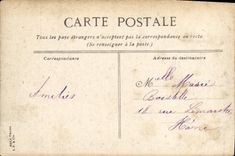 CARTE POSTALE
Tous les pays étrangers n'acceptent pas la correspondance au recto
(Se renseigner à la poste)
Correspondance
Adresse du destinataire
Mlle Marie
Amitiés
18 rue